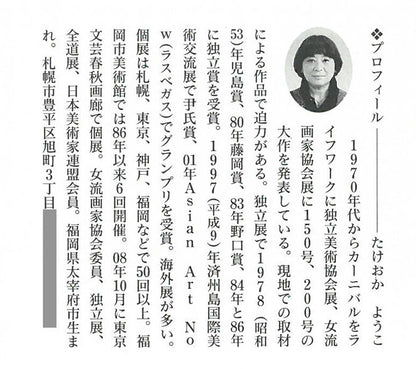 ❖プロフィール――――たけおか　ようこ
1970年代からカーニバルをラ
イフワークに独立美術協会展、女流
画家協会展に150号、200号の
大作を発表している。現地での取材
による作品で迫力がある。独立展で1978(昭和
53)年児島賞、80年藤岡賞、83年野口賞、84年と86年
に独立賞を受賞。1997(平成9)年済州島国際美
術交流展で尹氏賞、01年Asian Art No
w(ラスベガス)でグランプリを受賞。海外展が多い。
個展は札幌、東京、神戸、福岡などで50回以上。福
岡市美術館では86年以来6回開催。08年10月に東京
文芸春秋画廊で個展。女流画家協会委員、独立展、
全道展、日本美術家連盟会員。福岡県太宰府市生ま
れ。札幌市豊平区旭町3丁目